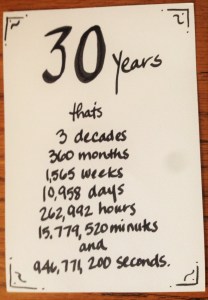 30 years
thats
3 decades
360 months
1,565 weeks
10,958 days
262,992 hours
15,779,520 minutes
and
946,771,200 seconds.